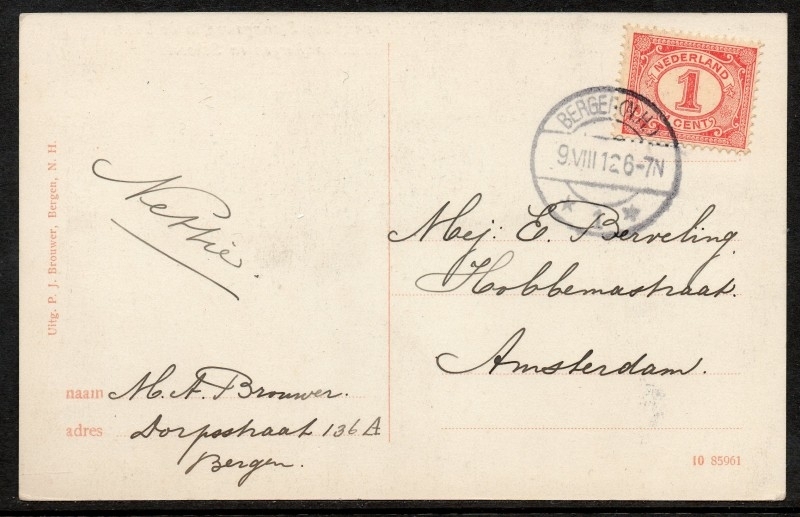 Uitg. P. J. Brouwer, Bergen, N. H.
Nettie.
naam M. A. Brouwer.
adres Dorpsstraat 136 A
Bergen.
NEDERLAND
1
CENT
BERGEN (N.H.)
9.VIII.12 6-7N
1
Mej: E. Berveling.
Hobbemastraat.
Amsterdam.
10 85961